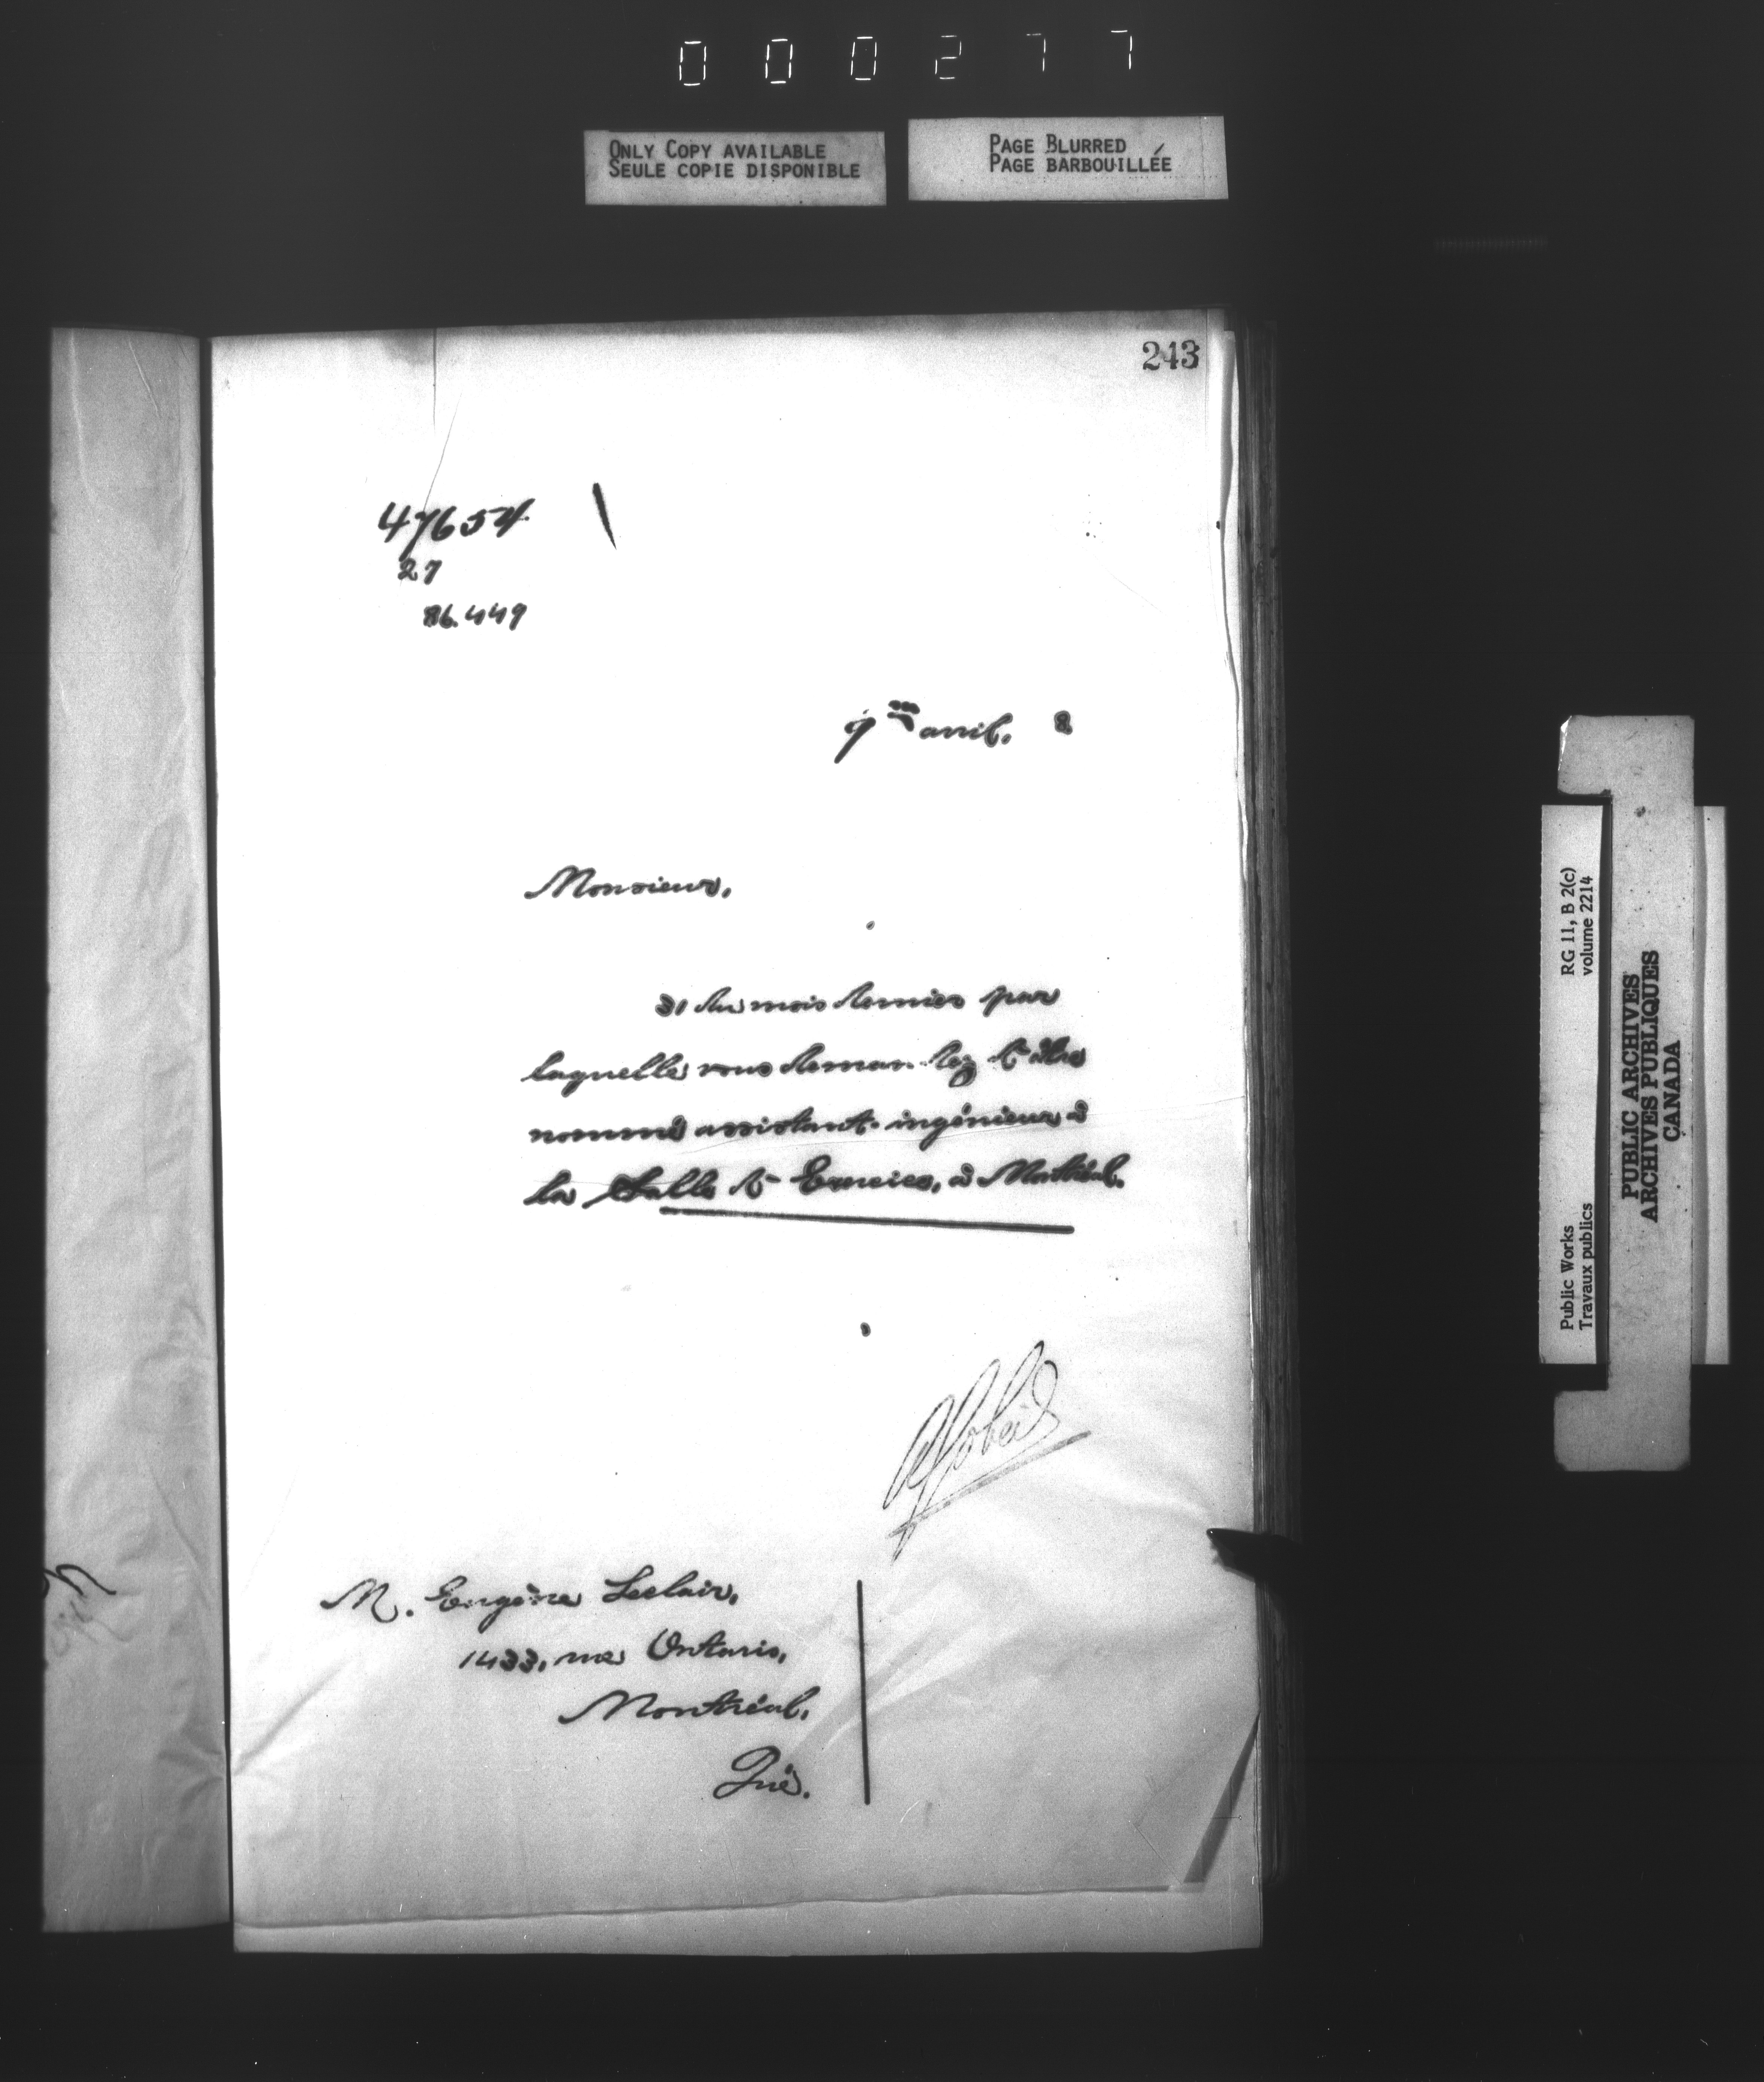 000277
ONLY COPY AVAILABLE
SEULE COPIE DISPONIBLE
PAGE BLURRED
PAGE BARBOUILLÉE
243
47654
27
86.449
9 m avril. 8
Monsieur,
31 du mois dernier par
laquelle vous demandez d'être
nommé assistant-ingénieur à
la Salle d'Exercices, à Montréal.
M. Eugène Leclair,
1433, rue Ontario,
Montréal.
Qué.
RG 11, B 2(c)
volume 2214
Public Works
Travaux publics
PUBLIC ARCHIVES
ARCHIVES PUBLIQUES
CANADA